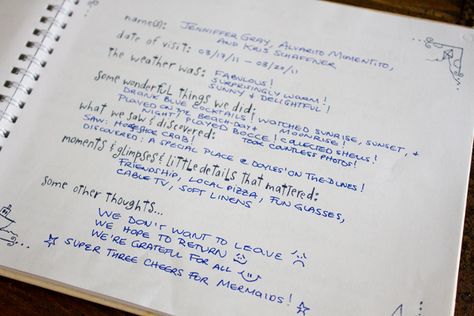 name(s): JENNIFFER GRAY, ALVARITO MOMENTITO,
AND KRIS SCHAFFNER
date of visit: 03/19/11 – 03/20/11
the weather was: FABULOUS!
SURPRISINGLY WARM!
SUNNY & DELIGHTFUL!
some wonderful things we did:
DRANK BLUE COCKTAILS! WATCHED SUNRISE, SUNSET, &
PLAYED ON THE BEACH DAY & MOONRISE!
NIGHT! PLAYED BOCCE! COLLECTED SHELLS!
what we saw & discovered: TOOK COUNTLESS PHOTOS!
SAW: HORSESHOE CRAB!
DISCOVERED: A SPECIAL PLACE @ DOYLES' ON THE DUNES!
moments & glimpses & little details that mattered:
FRIENDSHIP, LOCAL PIZZA, FUN GLASSES,
CABLE TV, SOFT LINENS
some other thoughts...
WE DON'T WANT TO LEAVE
WE HOPE TO RETURN
WE'RE GRATEFUL FOR ALL
SUPER THREE CHEERS FOR MERMAIDS!